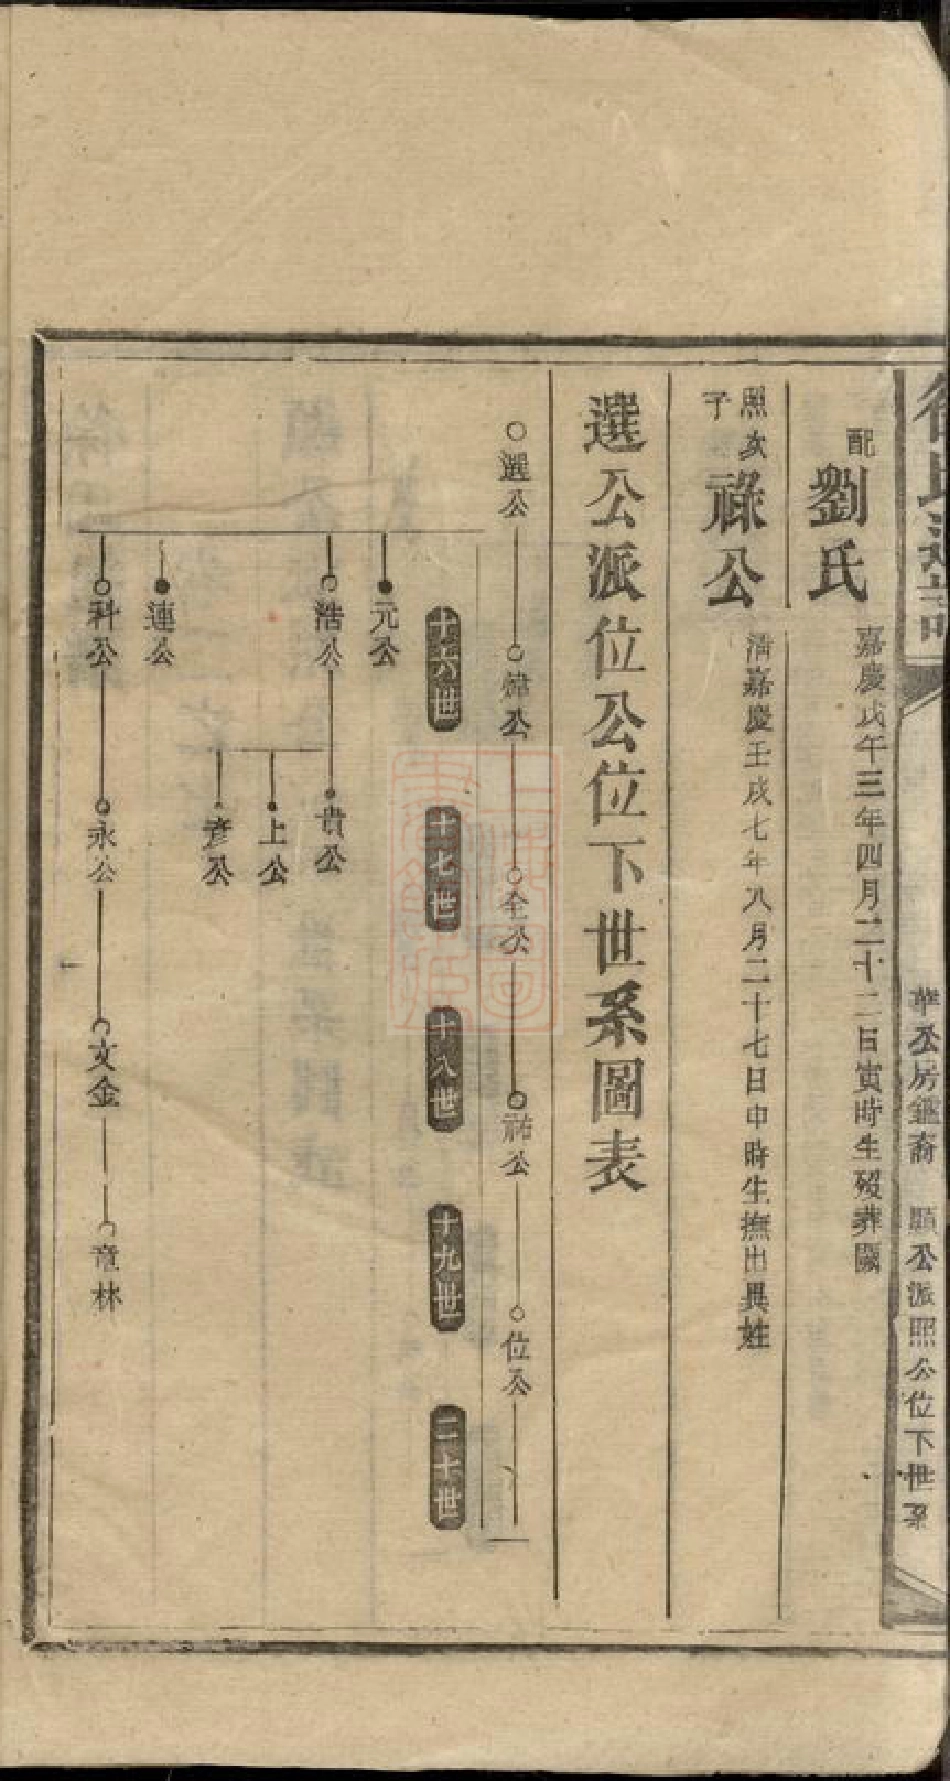 華公房鑑裔 順公派照公位下世系
配劉氏
嘉慶戊午三年四月二十二日寅時生歿葬闕
照次子祿公
清嘉慶壬戌七年八月二十七日申時生撫出異姓
選公派位公位下世系圖表
選公 煒公 全公 祐公 位公
十六世 十七世 十八世 十九世 二十世
元公
浩公 貴公
上公
彥公
連公
科公 永公 文金 章林